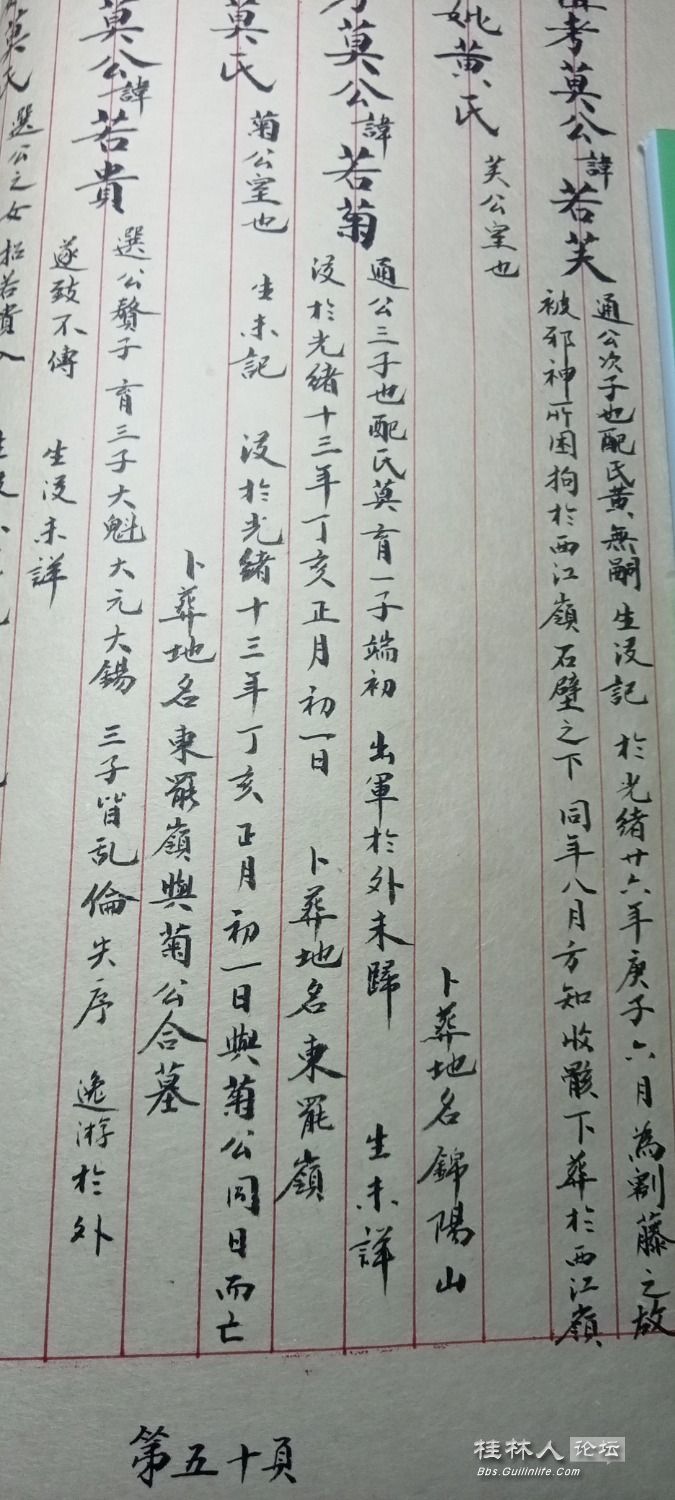 考莫公諱若芙
通公次子也配氏黄無嗣 生没記 於光緒廿六年庚子六月為割藤之故
被邪神所困拘於西江嶺石壁之下 同年八月方知收骸下葬於西江嶺
妣黄氏 芙公室也 卜葬地名錦陽山
考莫公諱若菊
通公三子也配氏莫育一子端初 出軍於外未歸 生未詳
没於光緒十三年丁亥正月初一日 卜葬地名東罷嶺
莫氏 菊公室也 生未記 没於光緒十三年丁亥正月初一日與菊公同日而亡
卜葬地名東罷嶺與菊公合墓
莫公諱若貴
選公贅子 育三子大魁大元大錫 三子皆乱倫失序 逸游於外
遂致不傳 生没未詳
莫氏 選公之女招若貴入
第五十頁
桂林人论坛
Bbs.Guilinlife.Com